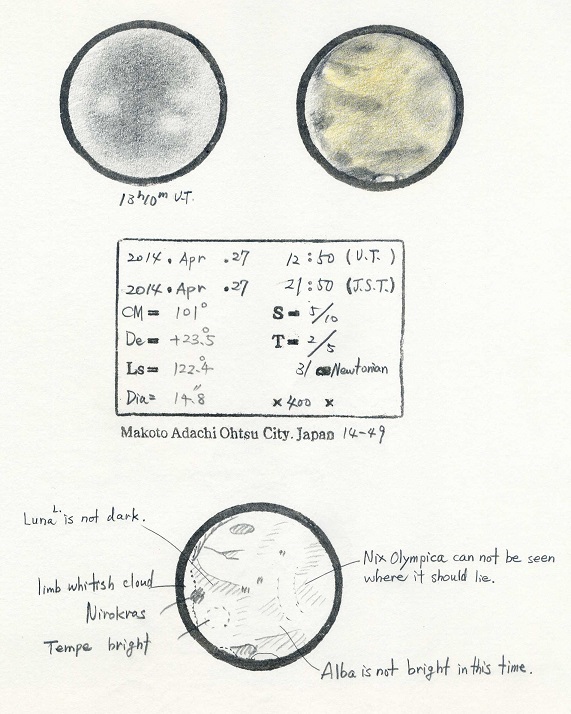 13h10m U.T.
2014. Apr .27 12:50 (U.T.)
2014. Apr .27 21:50 (J.S.T.)
CM= 101° S= 5/10
De= +23.°5 T= 2/5
Ls= 122.°4 31 Newtonian
Dia= 14."8 × 400 ×
Makoto Adachi Ohtsu City. Japan 14-49
Luna L. is not dark.
limb whitish cloud
Nirokras
Tempe bright
Nix Olympica can not be seen
where it should lie.
Alba is not bright in this time.